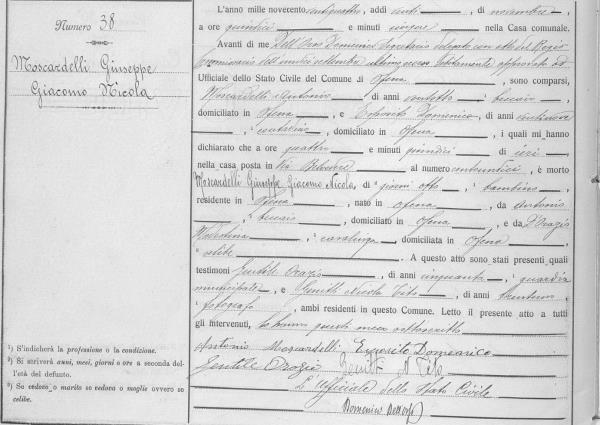 Numero 38
Moscardelli Giuseppe
Giacomo Nicola
¹) S'indicherà la professione o la condizione.
²) Si scriverà anni, mesi, giorni o ore a seconda del-
l'età del defunto.
³) Se vedovo o marito se vedova o moglie ovvero se
celibe.
L'anno mille novecento ventiquattro, addì venti di novembre,
a ore quindici e minuti cinque nella Casa comunale.
Avanti di me Dell'Orso Domenico Segretario delegato con atto del
debitamente approvato ed
Ufficiale dello Stato Civile del Comune di Ofena, sono comparsi,
Moscardelli Antonio, di anni ventotto, beccaio,
domiciliato in Ofena, e Esposito Domenico, di anni
, domiciliato in Ofena, i quali mi hanno
dichiarato che a ore quattro e minuti quindici di ieri,
nella casa posta in Via Belvedere al numero ventundici, è morto
Moscardelli Giuseppe Giacomo Nicola, di giorni otto, bambino,
residente in Ofena, nato in Ofena, da Antonio
, beccaio, domiciliato in Ofena, e da D'Orazio
Valentina, casalinga, domiciliata in Ofena,
celibe. A questo atto sono stati presenti quali
testimoni Gentile Orazio, di anni cinquanta, guardia
municipale, e Gentile Nicola Tito, di anni trentuno,
fotografo, ambi residenti in questo Comune. Letto il presente atto a tutti
gli intervenuti, lo hanno questi meco sottoscritto
Antonio Moscardelli Esposito Domenico
Gentile Orazio Gentile N Tito
L'Ufficiale dello Stato Civile
Domenico Dell'Orso